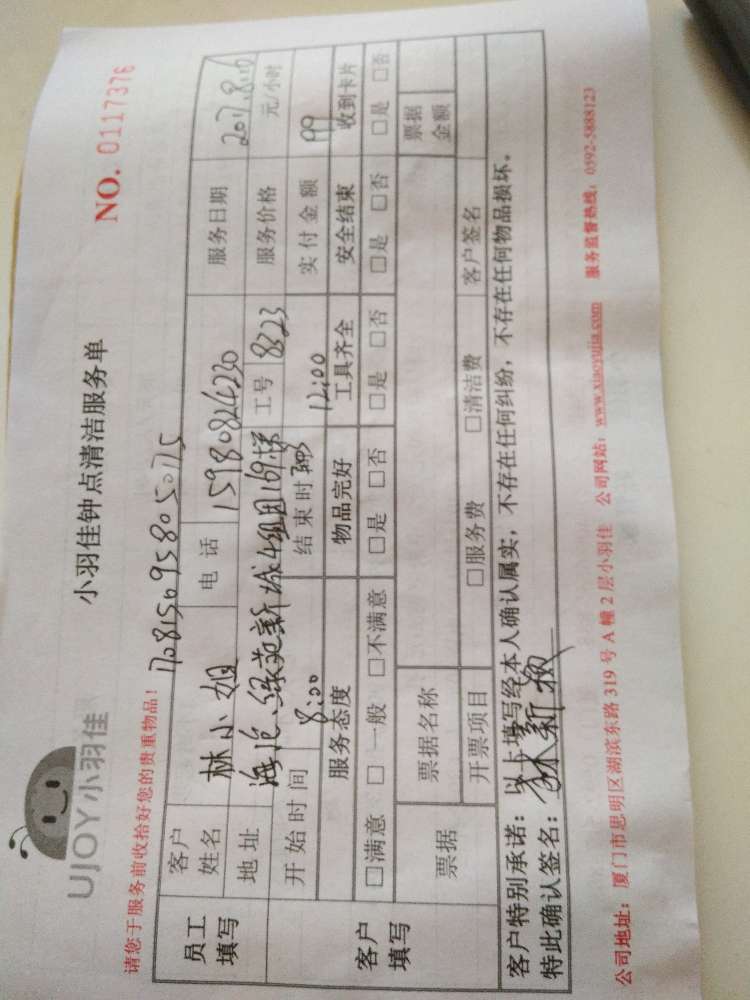 UJOY小羽佳
小羽佳钟点清洁服务单
NO. 0117376
请您于服务前收拾好您的贵重物品！
170815695805075
员工填写 客户姓名 林小姐 电话 15980824230 服务日期 2017.8.16
地址 海沧、绿苑新城4组团169 工号 8323 服务价格 元/小时
客户填写 开始时间 8:00 结束时间 12:00 实付金额 199
服务态度 物品完好 工具齐全 安全结束 收到卡片
□满意 □一般 □不满意 □是 □否 □是 □否 □是 □否 □是 □否
票据 票据名称 票据金额
开票项目 □服务费 □清洁费 客户签名
客户特别承诺：以上填写经本人确认属实，不存在任何纠纷，不存在任何物品损坏。
特此确认签名：林新
公司地址：厦门市思明区湖滨东路 319 号 A 幢 2 层小羽佳 公司网站：www.xiaoyujia.com 服务监督热线：0592-5888123